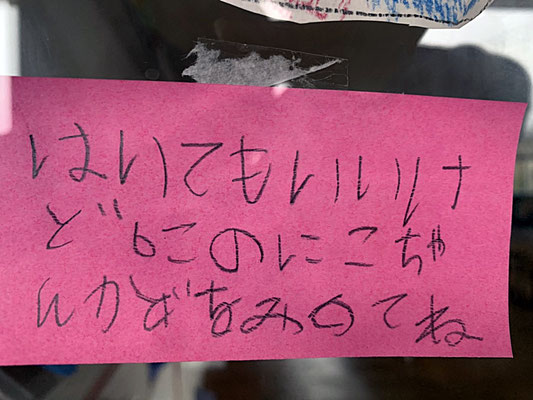 はいてもいいけ
どねこのにこちゃ
んかどおみのてね